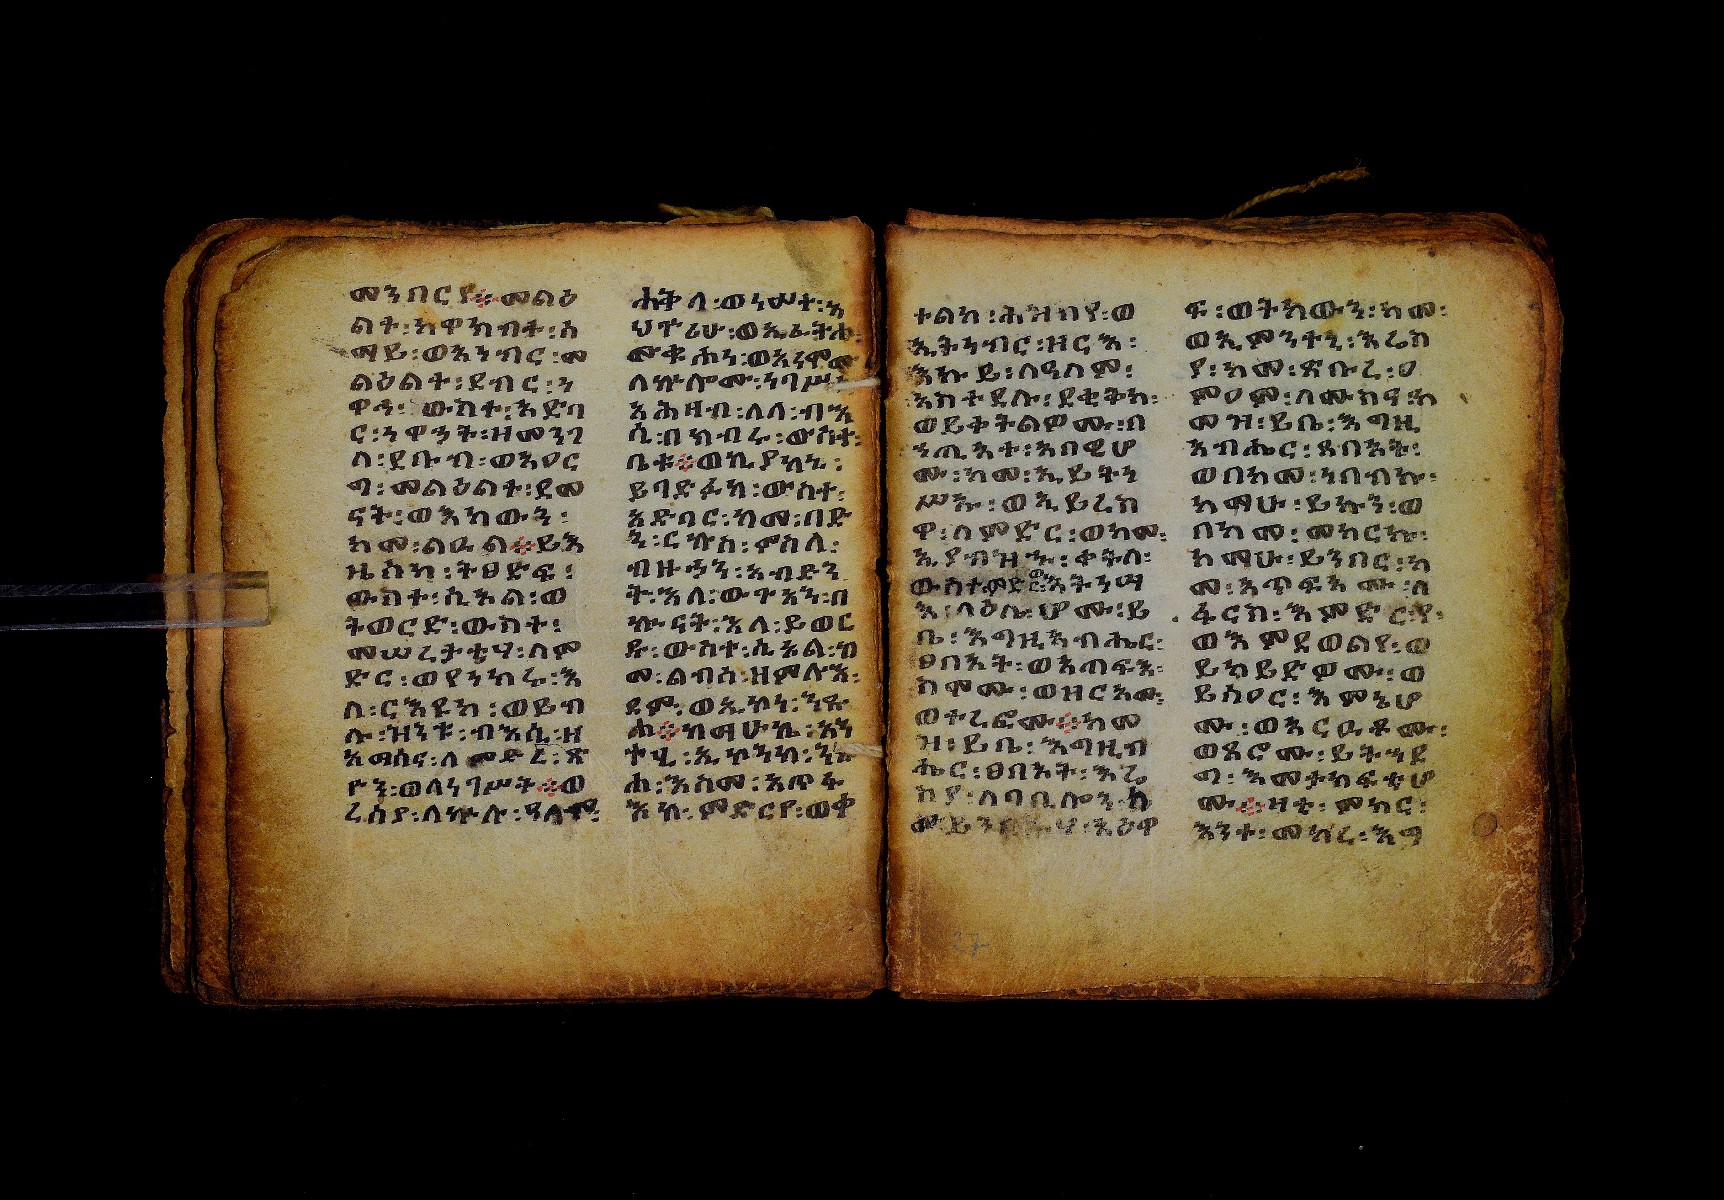 መንበርየ፡፡መልዕ
ልተ፡ከዋክብተ፡ሰ
ማይ፡ወእነብር፡መ
ልዕልተ፡ደብር፡ነ
ዋኅ፡ውስተ፡አድባ
ር፡ነዋኅት፡ዘመንገ
ለ፡ደቡብ፡ወእዐር
ግ፡መልዕልተ፡ደመ
ናት፡ወእከውን፡
ከመ፡ልዑል፡፡ይእ
ዜሰኬ፡ትፀድፍ፡
ውስተ፡ሲኦል፡ወ
ትወርድ፡ውስተ፡
መሠረታቲሃ፡ለም
ድር፡ወየነክሩ፡እ
ለ፡ርእዩከ፡ወይብ
ሉ፡ዝንቱ፡ብእሲ፡ዘ
አማሰና፡ለምድረ፡ጽ
ዮን፡ወለነገሥት፡፡ወ
ረሰያ፡ለኵሉ፡ዓለም፡
ሕቅለ፡ወነሥተ፡አ
ህጉሪሁ፡ወኢፈትሐ፡
ሙቁሐን፡ወአኀዞሙ
ለኵሎሙ፡ነገሥተ
አሕዛብ፡ለለ፡ብእ
ሲ፡በክብሩ፡ውስተ፡
ቤቱ፡፡ወኪያከኒ፡
ይገድፉከ፡ውስተ፡
አድባር፡ከመ፡በድ
ን፡ርኩስ፡ምስለ፡
ብዙኃን፡አብድን
ት፡እለ፡ውጉአን፡በ
ኲናት፡እለ፡ይወር
ዱ፡ውስተ፡ሲኦል፡ከ
መ፡ልብስ፡ዘምሉእ፡
ደም፡ወኢኮነ፡ንጹ
ሐ፡፡ከማሁኬ፡አን
ተሂ፡ኢኮንከ፡ንጹ
ሐ፡እስመ፡አጥፋ
እከ፡ምድርየ፡ወቀ
ተልከ፡ሕዝብየ፡ወ
ኢትነብር፡ዘርእ፡
እኩይ፡ለዓለም፡
አስተደሉ፡ደቂቅከ፡
ወይቀትልዎሙ፡በ
ኀጢአተ፡አበዊሆ
ሙ፡ከመ፡ኢይትን
ሥኡ፡ወኢይረስ
ዋ፡ለምድር፡ወከመ፡
ኢያብዝኁ፡ቀትለ፡
ውስተምድር፡እትንሣ
እ፡ላዕሌሆሙ፡ይ
ቤ፡እግዚአብሔር፡
ፀባኦት፡ወእጠፍእ፡
ስሞሙ፡ወዘርኦሙ፡
ወተረፎሙ፡፡ከመ
ዝ፡ይቤ፡እግዚብ
ሔር፡ፀባኦት፡እሬ
ስያ፡ለባቢሎን፡ከ
መ፡ይንበሩሃ፡አዕዋ
ፍ፡ወትከውን፡ከመ፡
ወኢምንተኒ፡እሬስ
ያ፡ከመ፡ጽቡረ፡ዐ
ምዐም፡ለሙስና፡ከ
መዝ፡ይቤ፡እግዚ
አብሔር፡ጸባኦት፡
ወበከመ፡ነበብኩ፡
ከማሁ፡ይኩን፡ወ
በከመ፡መከርኩ፡
ከማሁ፡ይነብር፡ከ
መ፡አጥፍኦሙ፡ለ
ፋርስ፡እምድርየ፡
ወእምደወልየ፡ወ
ይከይድዎሙ፡ወ
ይሰዐር፡እምኔሆ
ሙ፡ወአርዑቶሙ፡
ወጾሮሙ፡ይትነደ
ግ፡እመታክፍቲሆ
ሙ፡፡ዛቲ፡ምክር፡
እንተ፡መከረ፡እግ